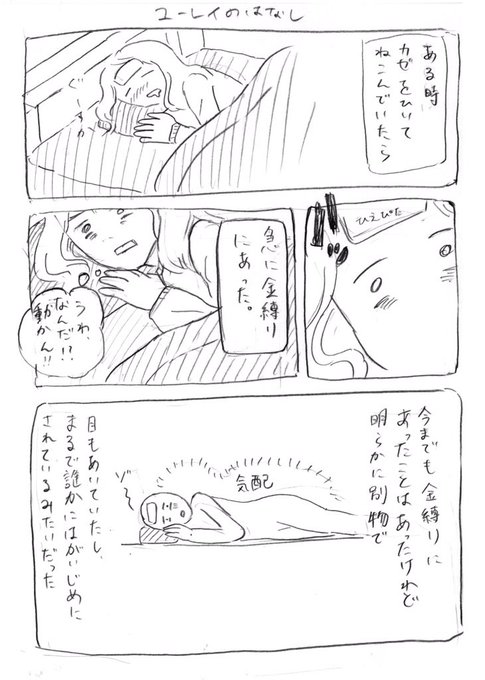 ユーレイのはなし
ある時
カゼをひいて
ねこんでいたら
ぐーすか
ひえぴた
!!
急に金縛り
にあった。
うわ、
なんだ!?
動かん!!
今までも金縛りに
あったことはあったけれど
明らかに別物で
気配
ゾ〜
目もあいていたし、
まるで誰かにはがいじめに
されているみたいだった